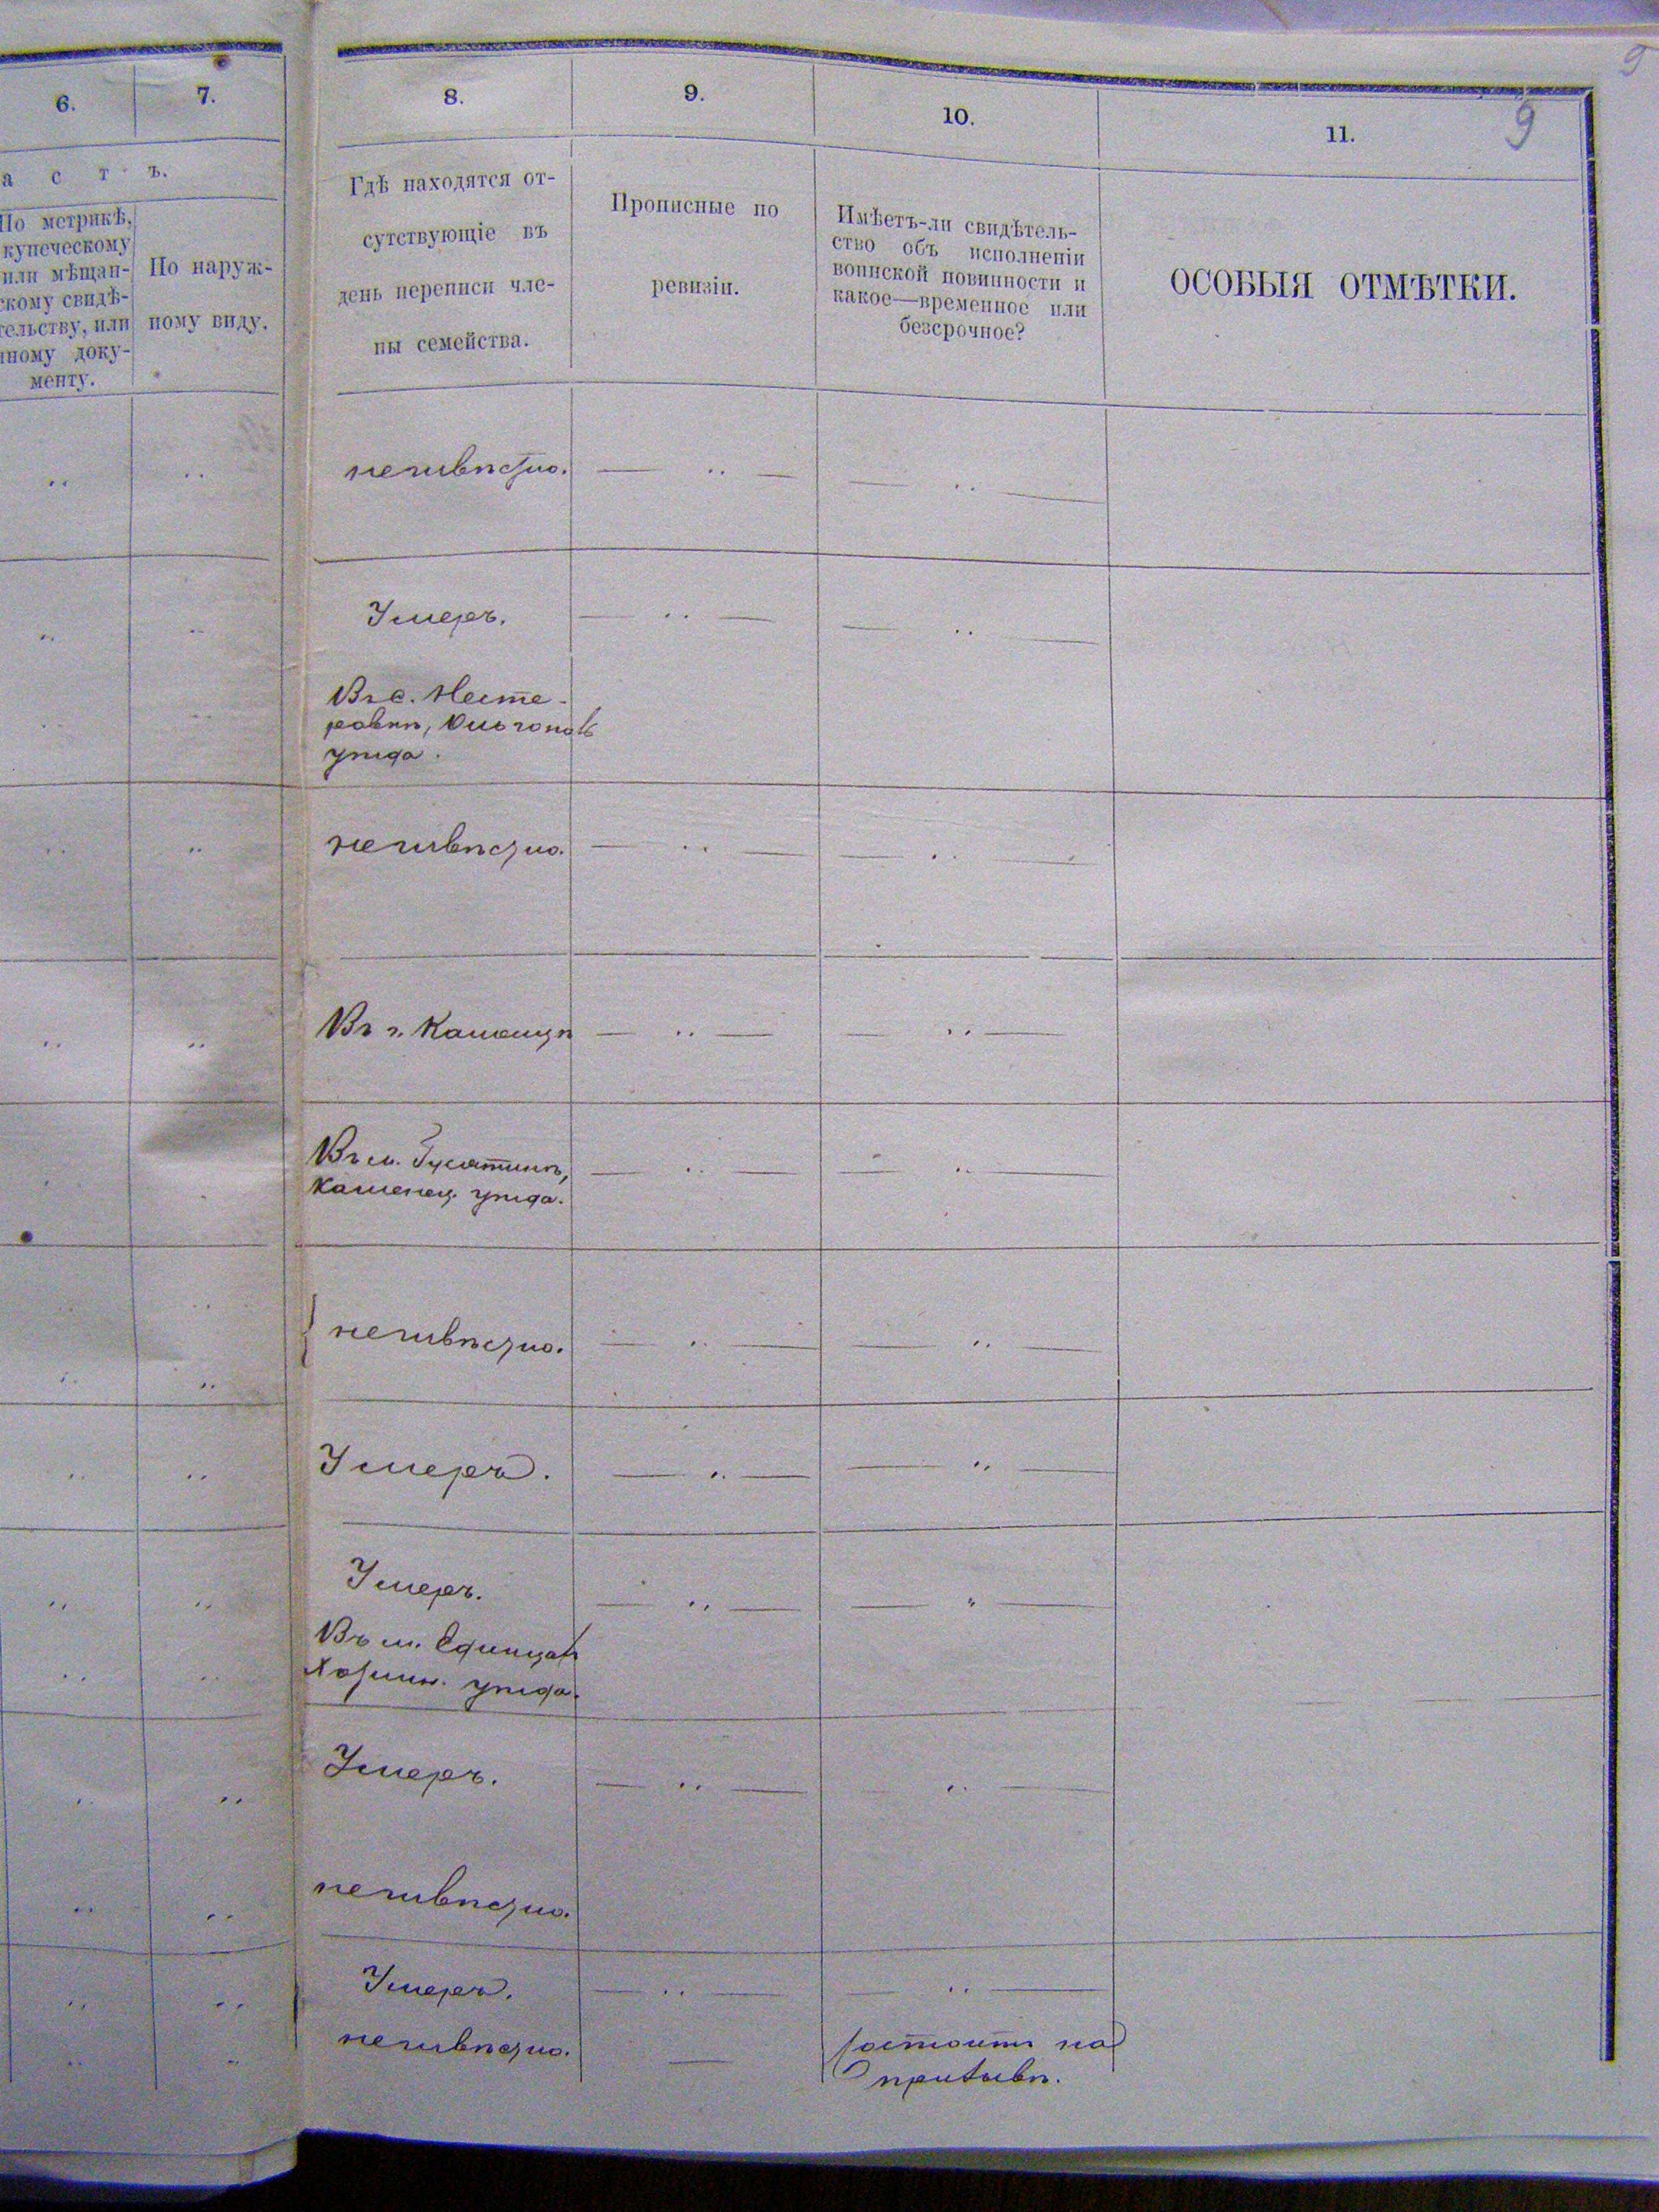 9
9
6.
7.
8.
9.
10.
11.
а с т ъ.
По метрикѣ,
купеческому
или мѣщан-
скому свидѣ-
тельству, или
иному доку-
менту.
По наруж-
ному виду.
Гдѣ находятся от-
сутствующіе въ
день переписи чле-
ны семейства.
Прописные по
ревизіи.
Имѣетъ-ли свидѣтель-
ство объ исполненіи
воинской повинности и
какое—временное или
безсрочное?
ОСОБЫЯ ОТМѢТКИ.
неизвѣстно.
Умеръ.
Въ с. Несте-
ровкѣ,
уѣзда.
неизвѣстно.
Въ г. Каменцѣ
Въ м. Гусятинѣ,
Каменец. уѣзда.
неизвѣстно.
Умеръ.
Умеръ.
Въ м. Единцахъ
Хотин. уѣзда.
Умеръ.
неизвѣстно.
Умеръ.
неизвѣстно.
Состоитъ на
призывѣ.